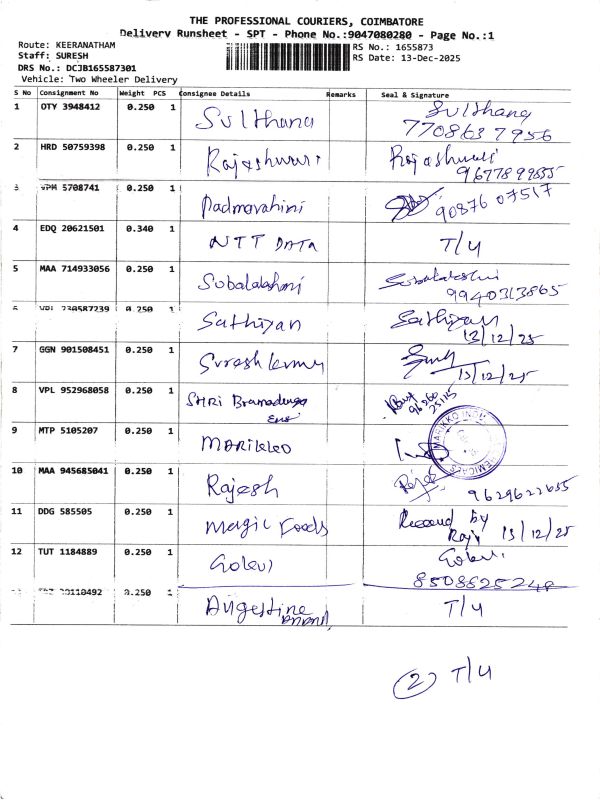 THE PROFESSIONAL COURIERS, COIMBATORE
Delivery Runsheet - SPT - Phone No.:9047080280 - Page No.:1
Route: KEERANATHAM
RS No.: 1655873
Staff: SURESH
RS Date: 13-Dec-2025
DRS No.: DCJB165587301
Vehicle: Two Wheeler Delivery
S No Consignment No Weight PCS Consignee Details Remarks Seal & Signature
1 OTY 3948412 0.250 1 Sulthana Sulthana
7708637956
2 HRD 50759398 0.250 1 Rajeshwari Rajeshwari
9677899855
3 5708741 0.250 1 Padmavahini 9087607517
4 EDQ 20621501 0.340 1 NTT DATA T/4
5 MAA 714933056 0.250 1 Subalakshmi Subalakshmi
9940313865
6 VPL 730587239 0.250 1 Sathiyan Sathiyan
13/12/25
7 GGN 901508451 0.250 1 Sureshkumar
13/12/25
8 VPL 952968058 0.250 1 SHRI
9 MTP 5105207 0.250 1 MARIKKO MARIKKO CHEMICALS
10 MAA 945685041 0.250 1 Rajesh 9629622655
11 DDG 585505 0.250 1 Magic Foods by
Raji 13/12/25
12 TUT 1184889 0.250 1
8508625248
0.250 1 T/4
2 T/4